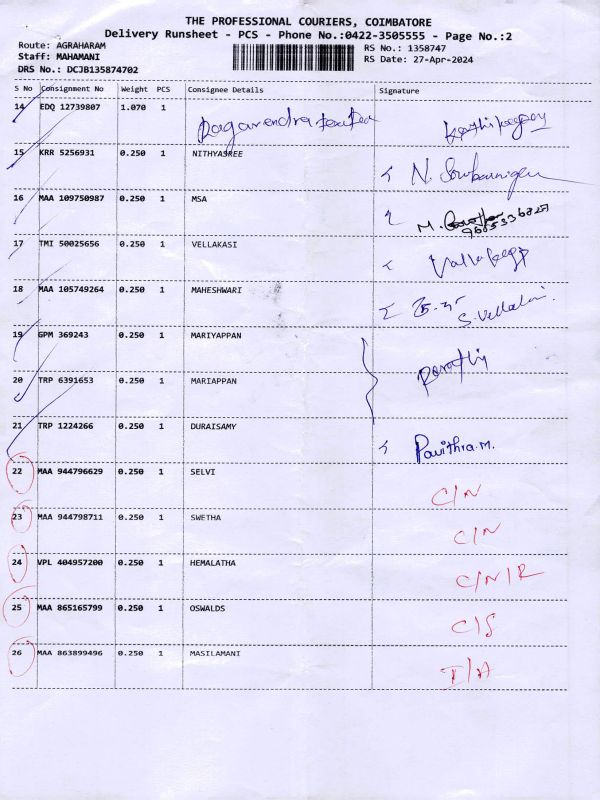 THE PROFESSIONAL COURIERS, COIMBATORE
Delivery Runsheet - PCS - Phone No.:0422-3505555 - Page No.:2
Route: AGRAHARAM RS No.: 1358747
Staff: MAHAMANI RS Date: 27-Apr-2024
DRS No.: DCJB135874702
S No Consignment No Weight PCS Consignee Details Signature
14 EDQ 12739807 1.070 1
15 KRR 5256931 0.250 1 NITHYASREE N.
16 MAA 109750987 0.250 1 MSA M.
17 TMI 50025656 0.250 1 VELLAKASI
18 MAA 105749264 0.250 1 MAHESHWARI
19 GPM 369243 0.250 1 MARIYAPPAN
20 TRP 6391653 0.250 1 MARIAPPAN
21 TRP 1224266 0.250 1 DURAISAMY Pavithra.M.
22 MAA 944796629 0.250 1 SELVI C/N
23 MAA 944798711 0.250 1 SWETHA C/N
24 VPL 404957200 0.250 1 HEMALATHA C/N/R
25 MAA 865165799 0.250 1 OSWALDS C/S
26 MAA 863899496 0.250 1 MASILAMANI I/A